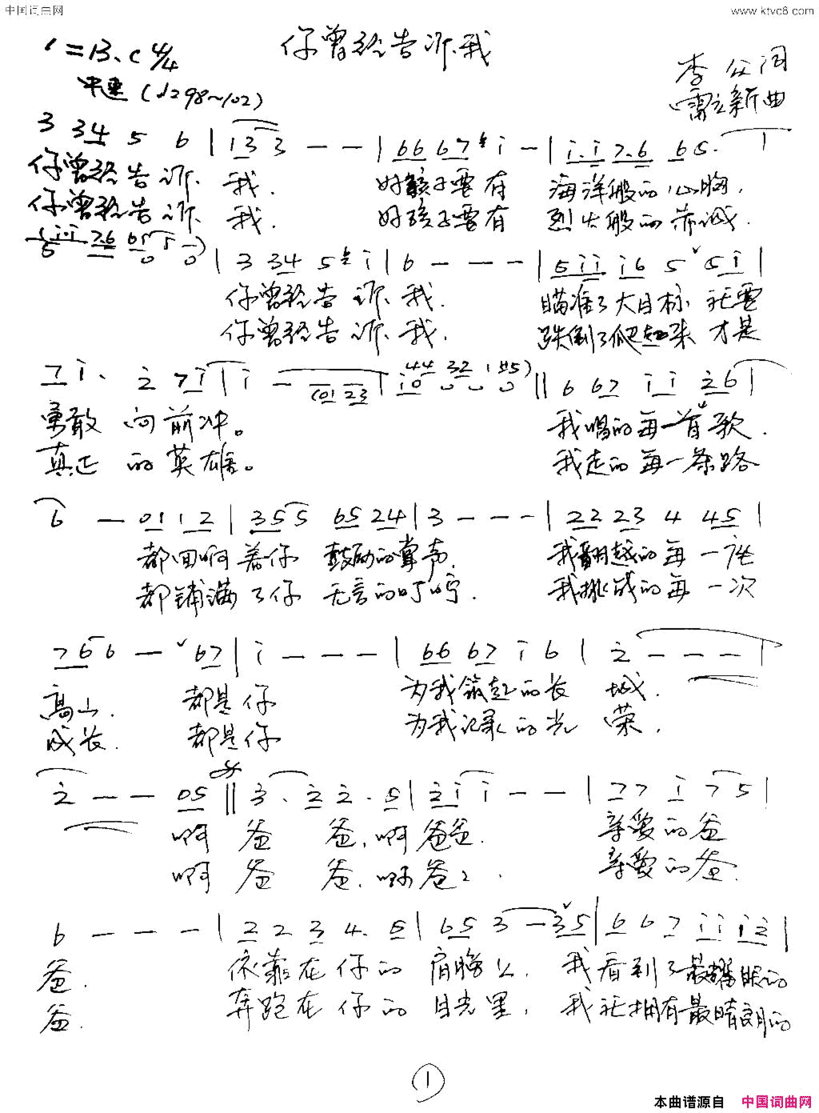 中国词曲网
www.ktvc8.com
你曾经告诉我
1=B、C 4/4
中速 (♩=98~102)
李众词
雷立新曲
3 34 5 6 | 133 - - | 66 67 i - | i.i 7.6 65.
你曾经告诉 我. 好孩子要有 海洋般的心胸.
你曾经告诉 我. 好孩子要有 烈火般的赤诚.
| 3 34 5 i | 6 - - - | 5ii i6 5 5i |
你曾经告诉 我. 瞄准了大目标 就要
你曾经告诉 我. 跌倒了爬起来 才是
7 i. 2 7i | i - (01 23 | i0 44 32 1 || 6 67 ii 26 |
勇敢 向前冲。 我唱的每一首歌.
真正 的英雄。 我走的每一条路
6 - 01 12 | 355 65 24 | 3 - - - | 22 23 4 45 |
都回响着你 鼓励的掌声. 我翻越的每一座
都铺满了你 无言的叮咛. 我挑战的每一次
766 - 67 | i - - - | 66 67 i 6 | 2 - - -
高山. 都是你 为我筑起的长 城.
成长. 都是你 为我记录的光 荣.
2 - - 05 || 3. 22. 5 | 2i i - - | 77 i 75 |
啊 爸 爸, 啊爸爸. 亲爱的爸
啊 爸 爸. 啊爸 亲爱的爸.
6 - - - | 22 3 4. 5 | 65 3 - 35 | 66 7 ii i2 |
爸. 依靠在你的 肩膀上. 我看到了最耀眼的
爸. 奔跑在你的 目光里. 我就拥有最晴朗的
1
本曲谱源自 中国词曲网